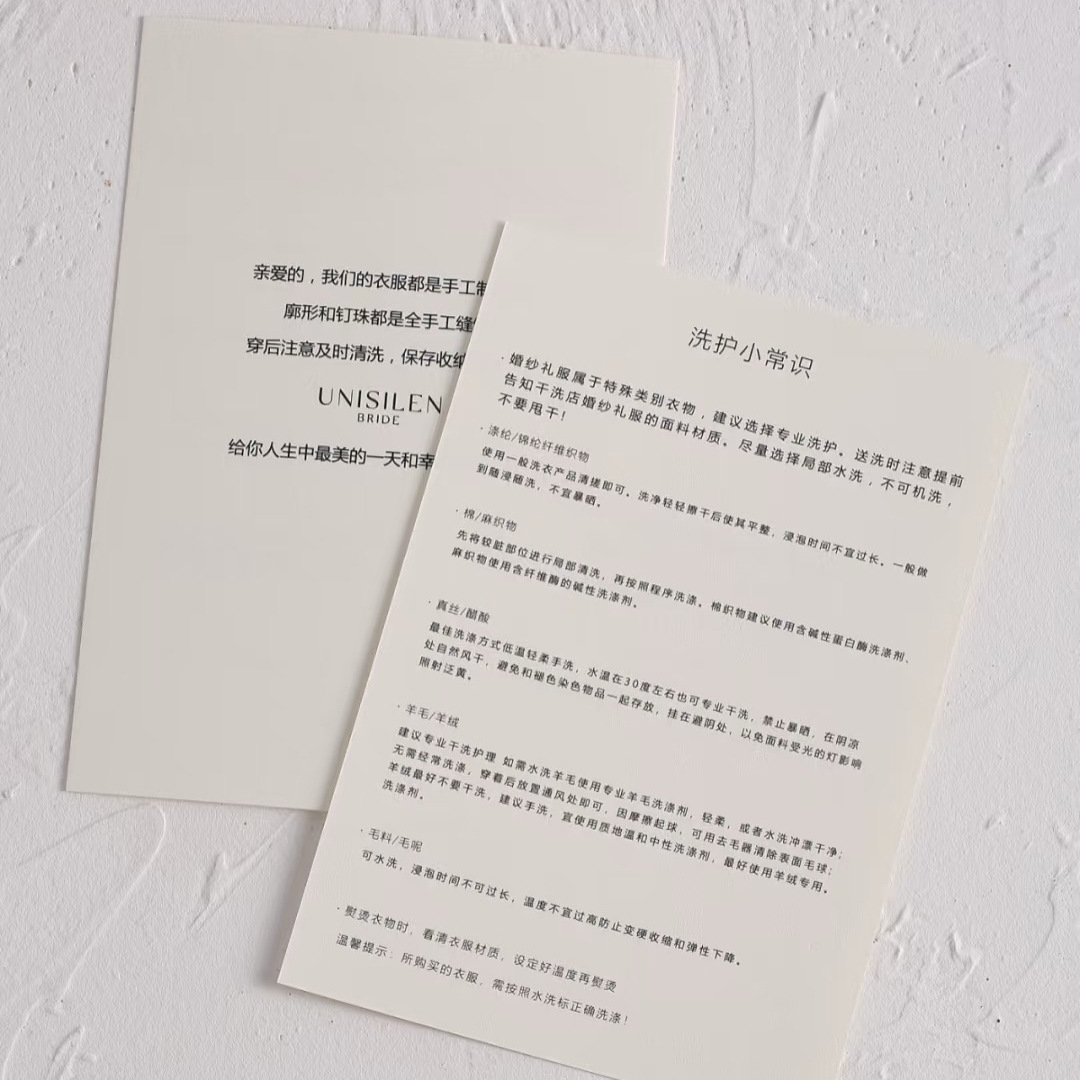 亲爱的，我们的衣服都是手工
廓形和钉珠都是全手工缝
穿后注意及时清洗，保存收纳
UNISILEN
BRIDE
给你人生中最美的一天和幸
洗护小常识
·婚纱礼服属于特殊类别衣物，建议选择专业洗护。送洗时注意提前
告知干洗店婚纱礼服的面料材质。尽量选择局部水洗，不可机洗，
不要甩干！
·涤纶/锦纶纤维织物
使用一般洗衣产品清搓即可。洗净轻轻擦干后使其平整，浸泡时间不宜过长。一般做
到随浸随洗，不宜暴晒。
·棉/麻织物
先将较脏部位进行局部清洗，再按照程序洗涤。棉织物建议使用含碱性蛋白酶洗涤剂、
麻织物使用含纤维酶的碱性洗涤剂。
·真丝/醋酸
最佳洗涤方式低温轻柔手洗，水温在30度左右也可专业干洗，禁止暴晒，在阴凉
处自然风干，避免和褪色染色物品一起存放，挂在避阴处，以免面料受光的灯影响
照射泛黄。
·羊毛/羊绒
建议专业干洗护理 如需水洗羊毛使用专业羊毛洗涤剂，轻柔，或者水洗冲漂干净；
无需经常洗涤，穿着后放置通风处即可，因摩擦起球，可用去毛器清除表面毛球；
羊绒最好不要干洗，建议手洗，宜使用质地温和中性洗涤剂，最好使用羊绒专用。
洗涤剂。
·毛料/毛呢
可水洗，浸泡时间不可过长，温度不宜过高防止变硬收缩和弹性下降。
·熨烫衣物时，看清衣服材质，设定好温度再熨烫
温馨提示：所购买的衣服，需按照水洗标正确洗涤！